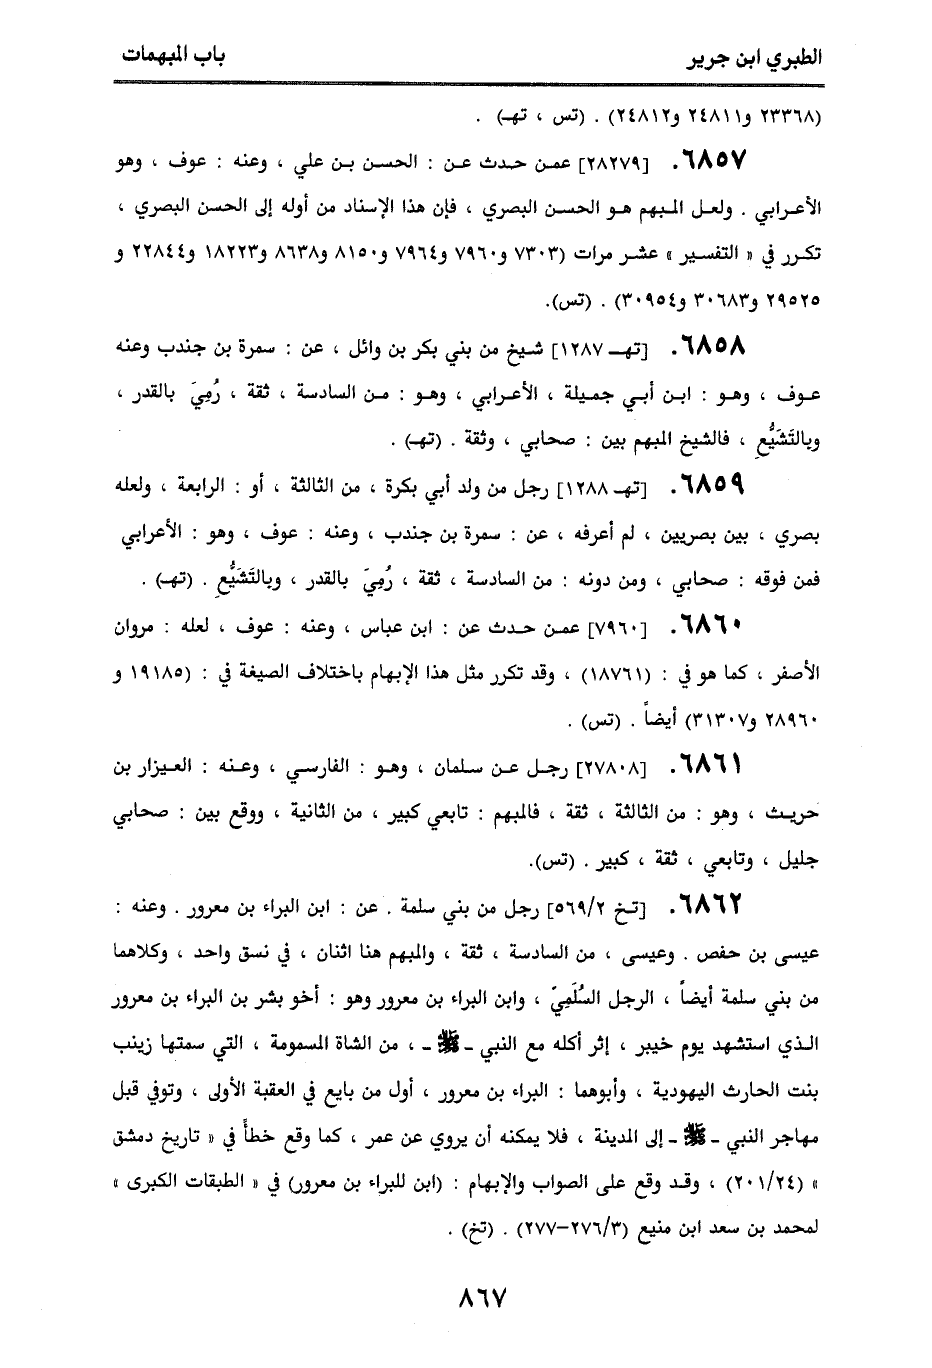 الطبري ابن جرير باب المبهمات
(٢٣٣٦٨ و٢٤٨١١ و٢٤٨١٢) . (تس ، تهـ) .
٦٨٥٧. [٢٨٢٧٩] عمن حدث عن : الحسن بن علي ، وعنه : عوف ، وهو
الأعرابي . ولعل المبهم هو الحسن البصري ، فإن هذا الإسناد من أوله إلى الحسن البصري ،
تكرر في « التفسير » عشر مرات (٧٣٠٣ و٧٩٦٠ و٧٩٦٤ و٨١٥٠ و٨٦٣٨ و١٨٢٢٣ و٢٢٨٤٤ و
٢٩٥٢٥ و٣٠٦٨٣ و٣٠٩٥٤) . (تس).
٦٨٥٨. [تهـ ١٢٨٧] شيخ من بني بكر بن وائل ، عن : سمرة بن جندب وعنه
عوف ، وهو : ابن أبي جميلة ، الأعرابي ، وهو : من السادسة ، ثقة ، رُمِيَ بالقدر ،
وبالتَشَيُّعِ ، فالشيخ المبهم بين : صحابي ، وثقة . (تهـ) .
٦٨٥٩. [تهـ ١٢٨٨] رجل من ولد أبي بكرة ، من الثالثة ، أو : الرابعة ، ولعله
بصري ، بين بصريين ، لم أعرفه ، عن : سمرة بن جندب ، وعنه : عوف ، وهو : الأعرابي
فمن فوقه : صحابي ، ومن دونه : من السادسة ، ثقة ، رُمِيَ بالقدر ، وبالتَشَيُّعِ . (تهـ) .
٦٨٦٠. [٧٩٦٠] عمن حدث عن : ابن عباس ، وعنه : عوف ، لعله : مروان
الأصفر ، كما هو في : (١٨٧٦١) ، وقد تكرر مثل هذا الإبهام باختلاف الصيغة في : (١٩١٨٥ و
٢٨٩٦٠ و٣١٣٠٧) أيضاً . (تس) .
٦٨٦١. [٢٧٨٠٨] رجل عن سلمان ، وهو : الفارسي ، وعنه : العيزار بن
حريث ، وهو : من الثالثة ، ثقة ، فالمبهم : تابعي كبير ، من الثانية ، ووقع بين : صحابي
جليل ، وتابعي ، ثقة ، كبير . (تس).
٦٨٦٢. [تخ ٥٦٩/٢] رجل من بني سلمة . عن : ابن البراء بن معرور . وعنه :
عيسى بن حفص . وعيسى ، من السادسة ، ثقة ، والمبهم هنا اثنان ، في نسق واحد ، وكلاهما
من بني سلمة أيضاً ، الرجل السُلَمِيّ ، وابن البراء بن معرور وهو : أخو بشر بن البراء بن معرور
الذي استشهد يوم خيبر ، إثر أكله مع النبي ـ ﷺ ـ ، من الشاة المسمومة ، التي سمتها زينب
بنت الحارث اليهودية ، وأبوهما : البراء بن معرور ، أول من بايع في العقبة الأولى ، وتوفي قبل
مهاجر النبي ـ ﷺ ـ إلى المدينة ، فلا يمكنه أن يروي عن عمر ، كما وقع خطأً في « تاريخ دمشق
» (٢٠١/٢٤) ، وقد وقع على الصواب والإبهام : (ابن للبراء بن معرور) في « الطبقات الكبرى »
لمحمد بن سعد ابن منيع (٢٧٦/٣-٢٧٧) . (تخ) .
٨٦٧